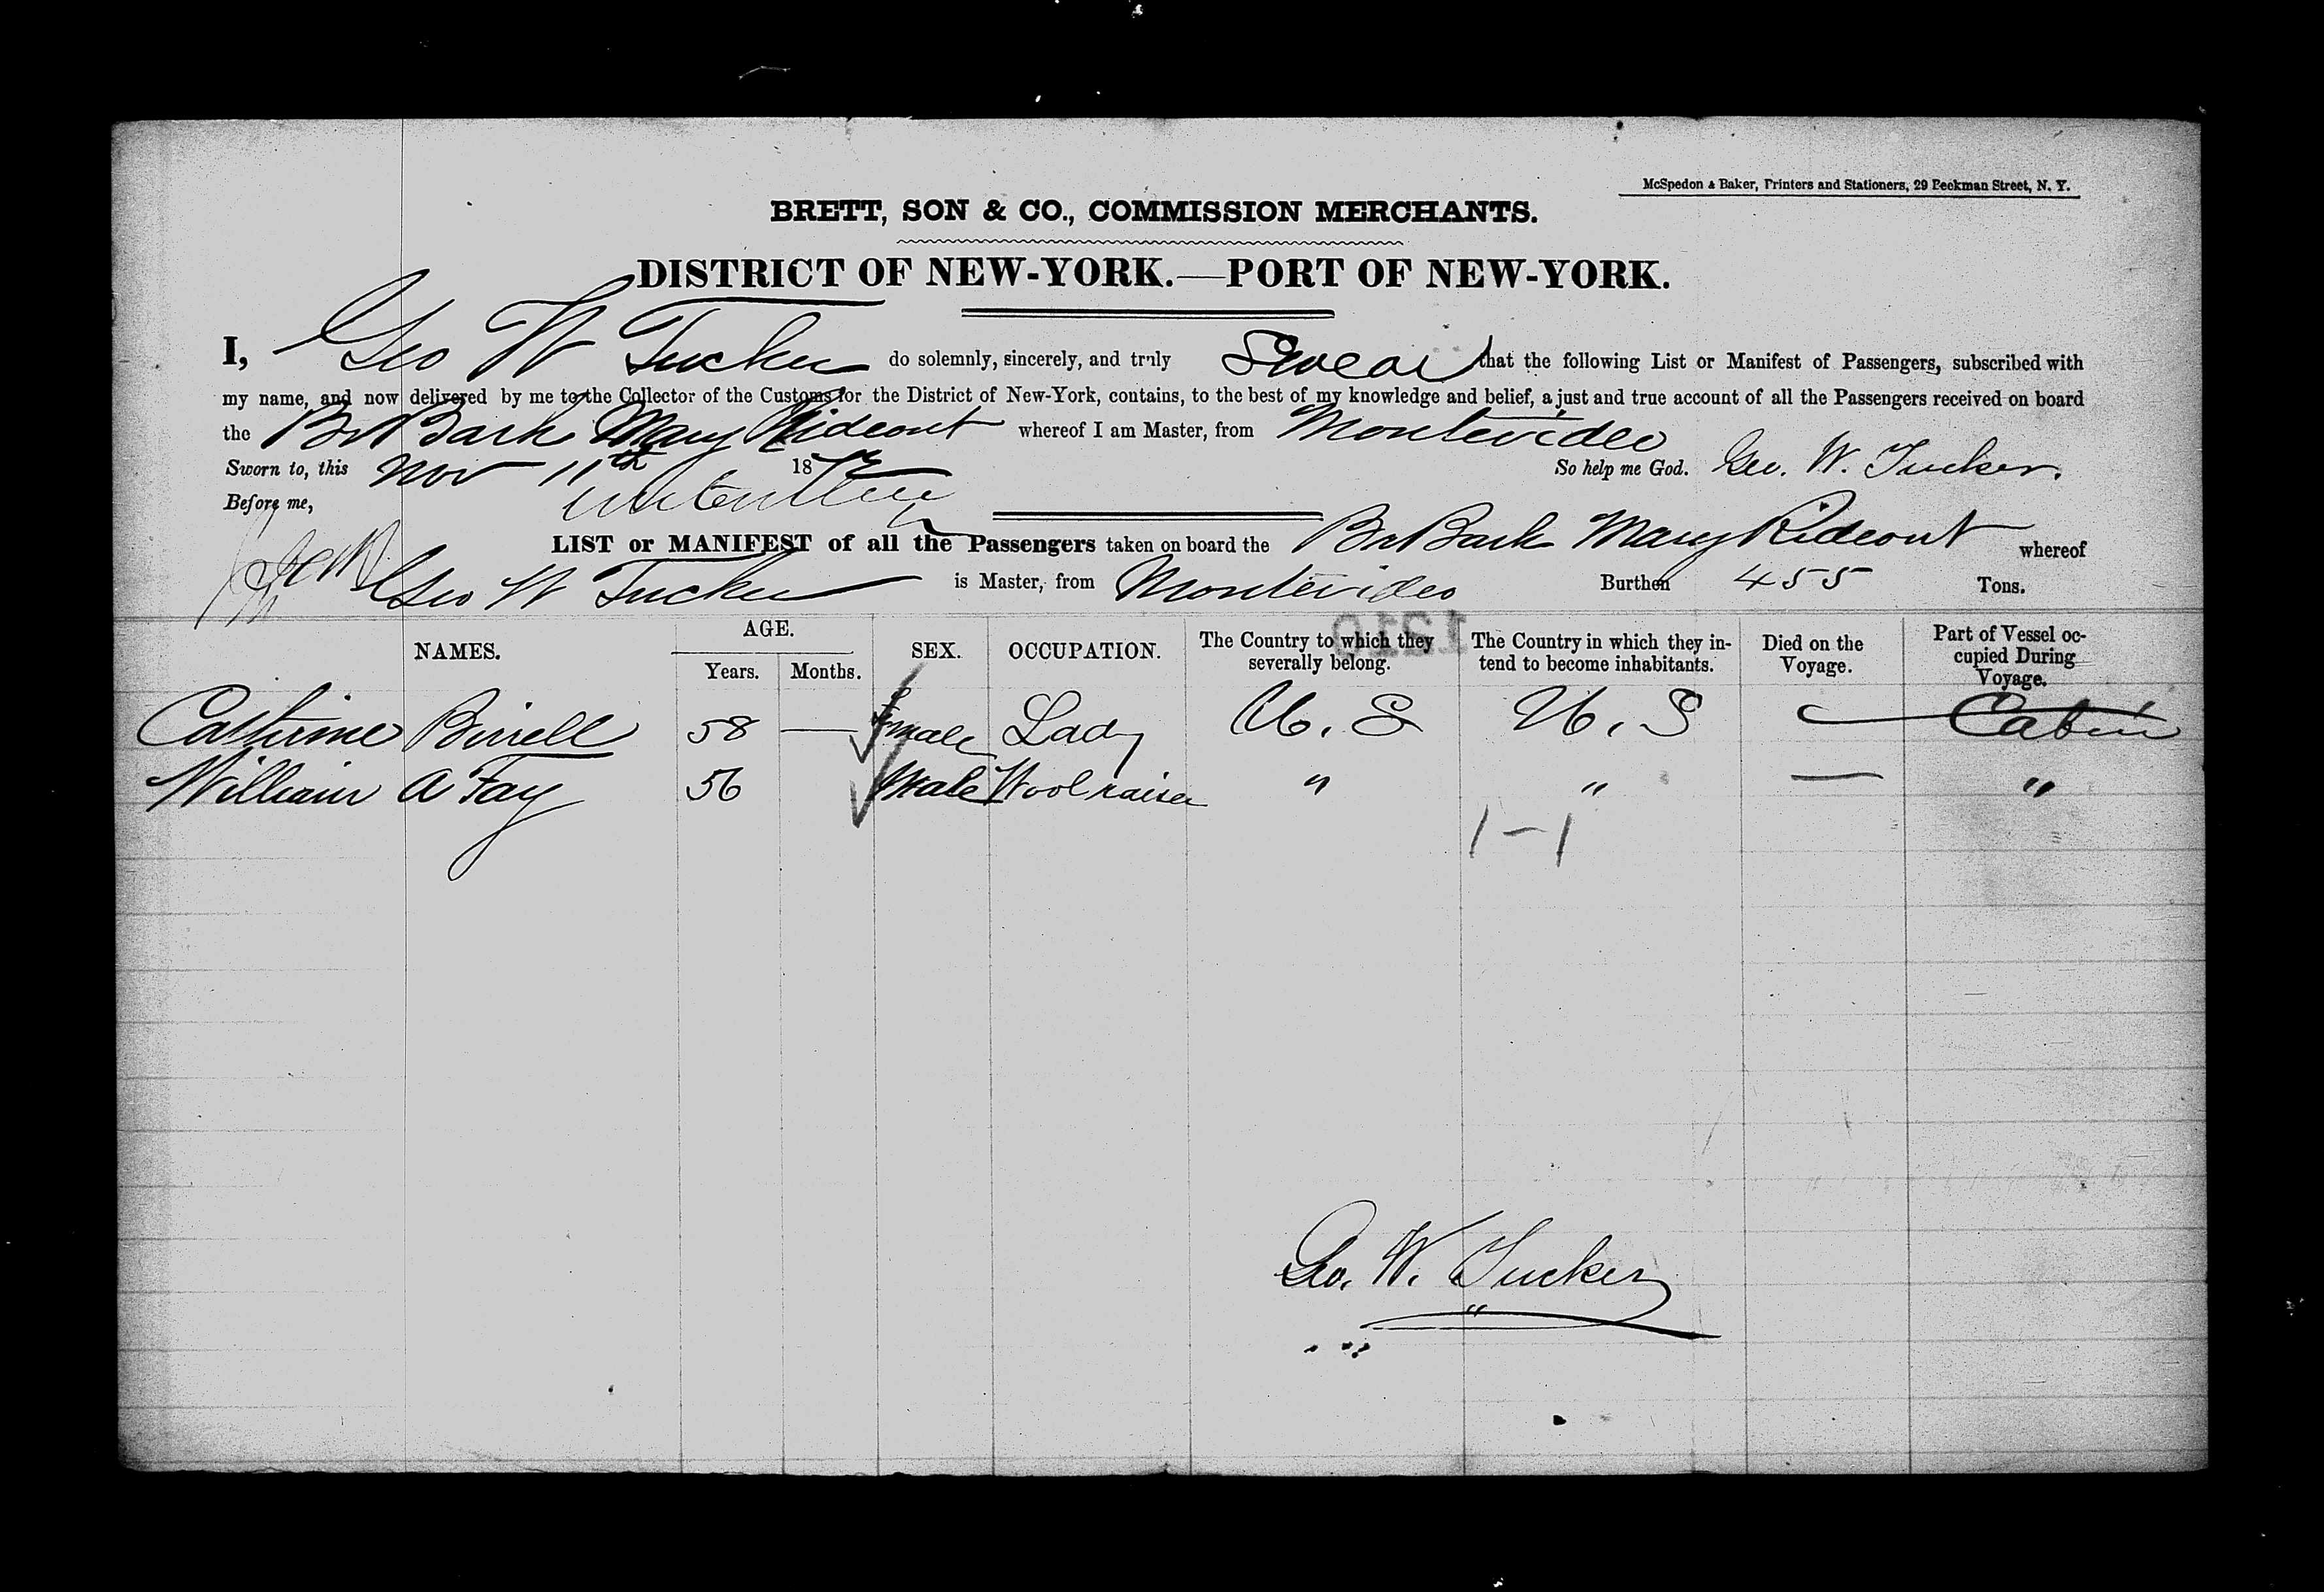 McSpedon & Baker, Printers and Stationers, 29 Beekman Street, N. Y.
BRETT, SON & CO., COMMISSION MERCHANTS.
DISTRICT OF NEW-YORK.—PORT OF NEW-YORK.
I, Geo W Tucker do solemnly, sincerely, and truly Swear that the following List or Manifest of Passengers, subscribed with
my name, and now delivered by me to the Collector of the Customs for the District of New-York, contains, to the best of my knowledge and belief, a just and true account of all the Passengers received on board
the Br Bark Mary Rideout whereof I am Master, from Montevideo
Sworn to, this Nov 11th 187 So help me God. Geo. W. Tucker.
Before me,
LIST or MANIFEST of all the Passengers taken on board the Br Bark Mary Rideout whereof
Geo W Tucker is Master, from Montevideo Burthen 455 Tons.
1210
NAMES. AGE. Years. Months. SEX. OCCUPATION. The Country to which they severally belong. The Country in which they intend to become inhabitants. Died on the Voyage. Part of Vessel occupied During Voyage.
Cathrine Birrell 58 — female Lady U. S U. S — Cabin
William A Fay 56 Male Wool raiser " " — "
1-1
Geo. W. Tucker